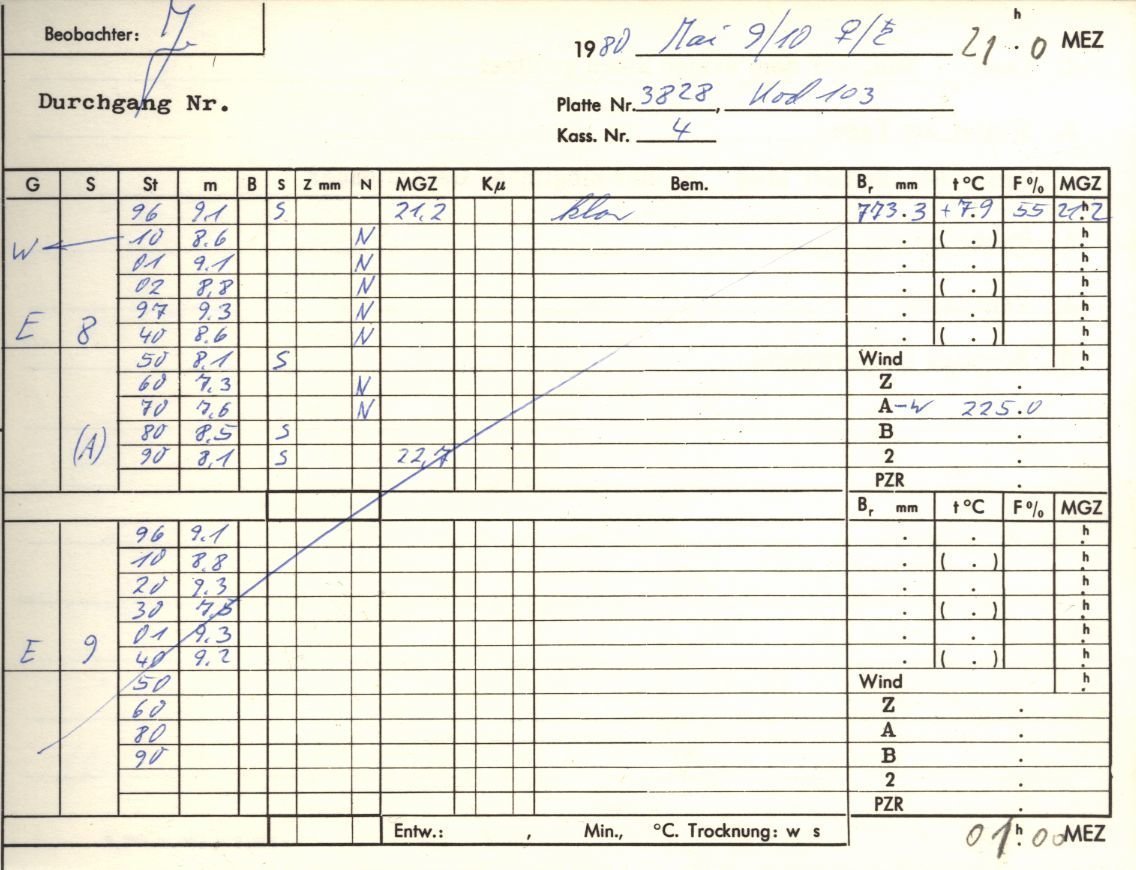 Beobachter: J
1980 Mai 9/10 ♀/♄ 21 h . 0 MEZ
Durchgang Nr.
Platte Nr. 3828, Kod 103
Kass. Nr. 4
G S St m B S Z mm N MGZ Kμ Bem. Br mm t °C F % MGZ
96 9.1 S 21,2 klar 773.3 +7.9 55 21h.2
W 10 8.6 N . ( . ) h.
01 9.1 N . . h.
02 8,8 N . ( . ) h.
97 9.3 N . . h.
E 8 40 8.6 N . ( . ) h.
50 8.1 S Wind h.
60 7.3 N Z .
70 7.6 N A-W 225.0
(A) 80 8.5 S B .
90 8,1 S 22,7 2 .
PZR .
Br mm t °C F % MGZ
96 9.1 . . h.
10 8.8 . ( . ) h.
20 9.3 . . h.
30 7.5 . ( . ) h.
01 9.3 . . h.
E 9 40 9.2 . ( . ) h.
50 Wind h.
60 Z .
80 A .
90 B .
2 .
PZR .
Entw.: , Min., °C. Trocknung: w s 01 h . 00 MEZ